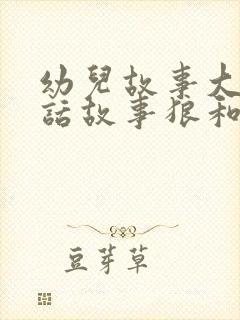 幼兒故事大
話故事狼和
豆芽草